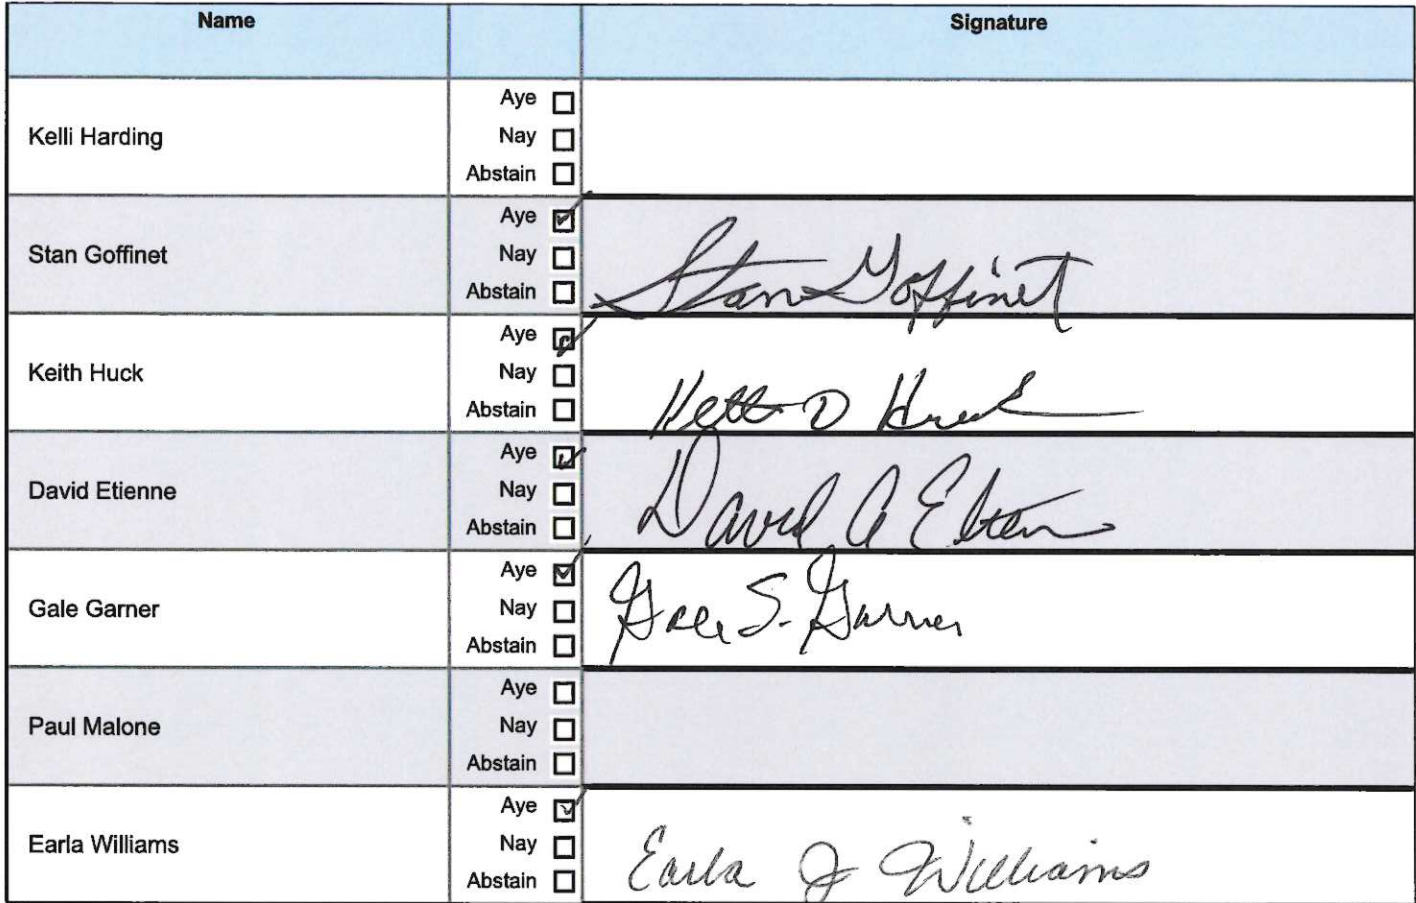 Name Signature
Kelli Harding
Aye
Nay
Abstain
Stan Goffinet
Aye
Nay
Abstain
Stan Goffinet
Keith Huck
Aye
Nay
Abstain
Keith D Huck
David Etienne
Aye
Nay
Abstain
David A Etienne
Gale Garner
Aye
Nay
Abstain
Gale S. Garner
Paul Malone
Aye
Nay
Abstain
Earla Williams
Aye
Nay
Abstain
Earla J Williams